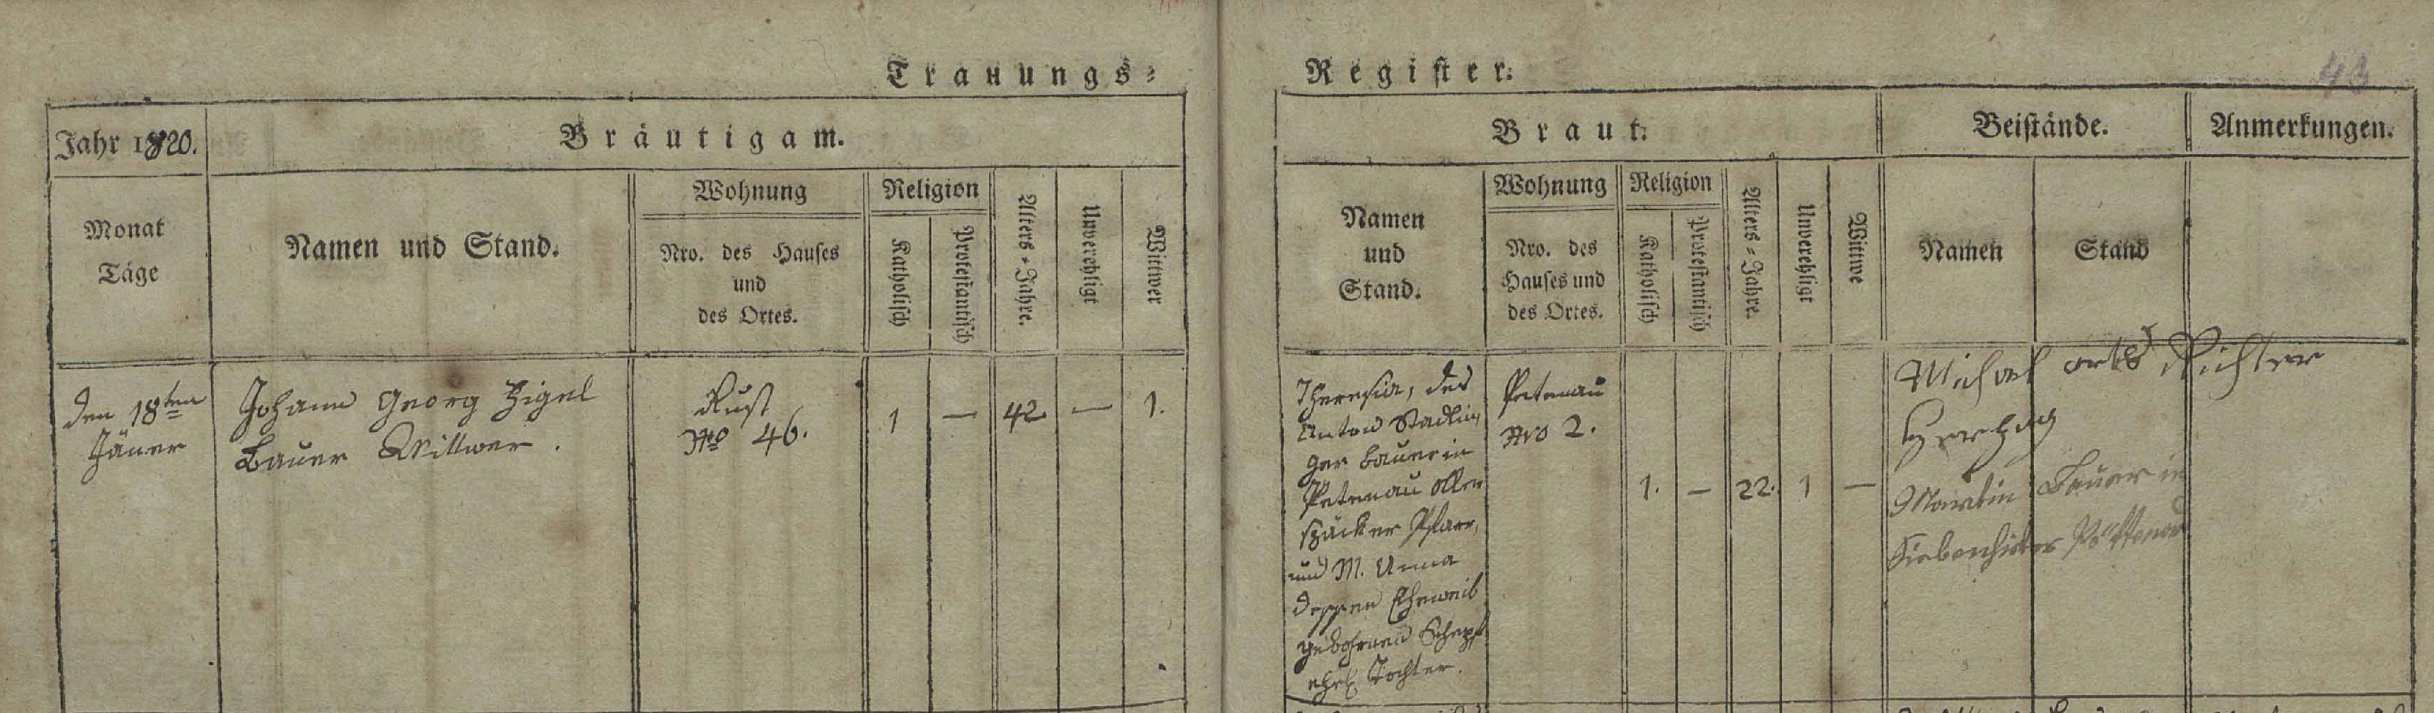 Trauungs-
Register.
43
Jahr 1820.
Bräutigam.
Braut.
Beistände.
Anmerkungen.
Monat
Täge
Namen und Stand.
Wohnung
Nro. des Hauses
und
des Ortes.
Religion
Katholisch
Protestantisch
Alters-Jahre.
Unverehligt
Wittwer
Namen
und
Stand.
Wohnung
Nro. des
Hauses und
des Ortes.
Religion
Katholisch
Protestantisch
Alters-Jahre.
Unverehligt
Wittwe
Namen
Stand
den 18ten
Jäner
Johann Georg Zigel
Bauer Wittwer.
Rust
Nro 46.
1
—
42
—
1.
Theresia, des
Anton Stadlin,
ger Bauer in
Petenau
Pfarr,
und M. Anna
dessen Eheweib
gebohrnen
ehel. Tochter.
Petenau
Nro 2.
1.
—
22.
1
—
Michael orts Richter
Martin Bauer in